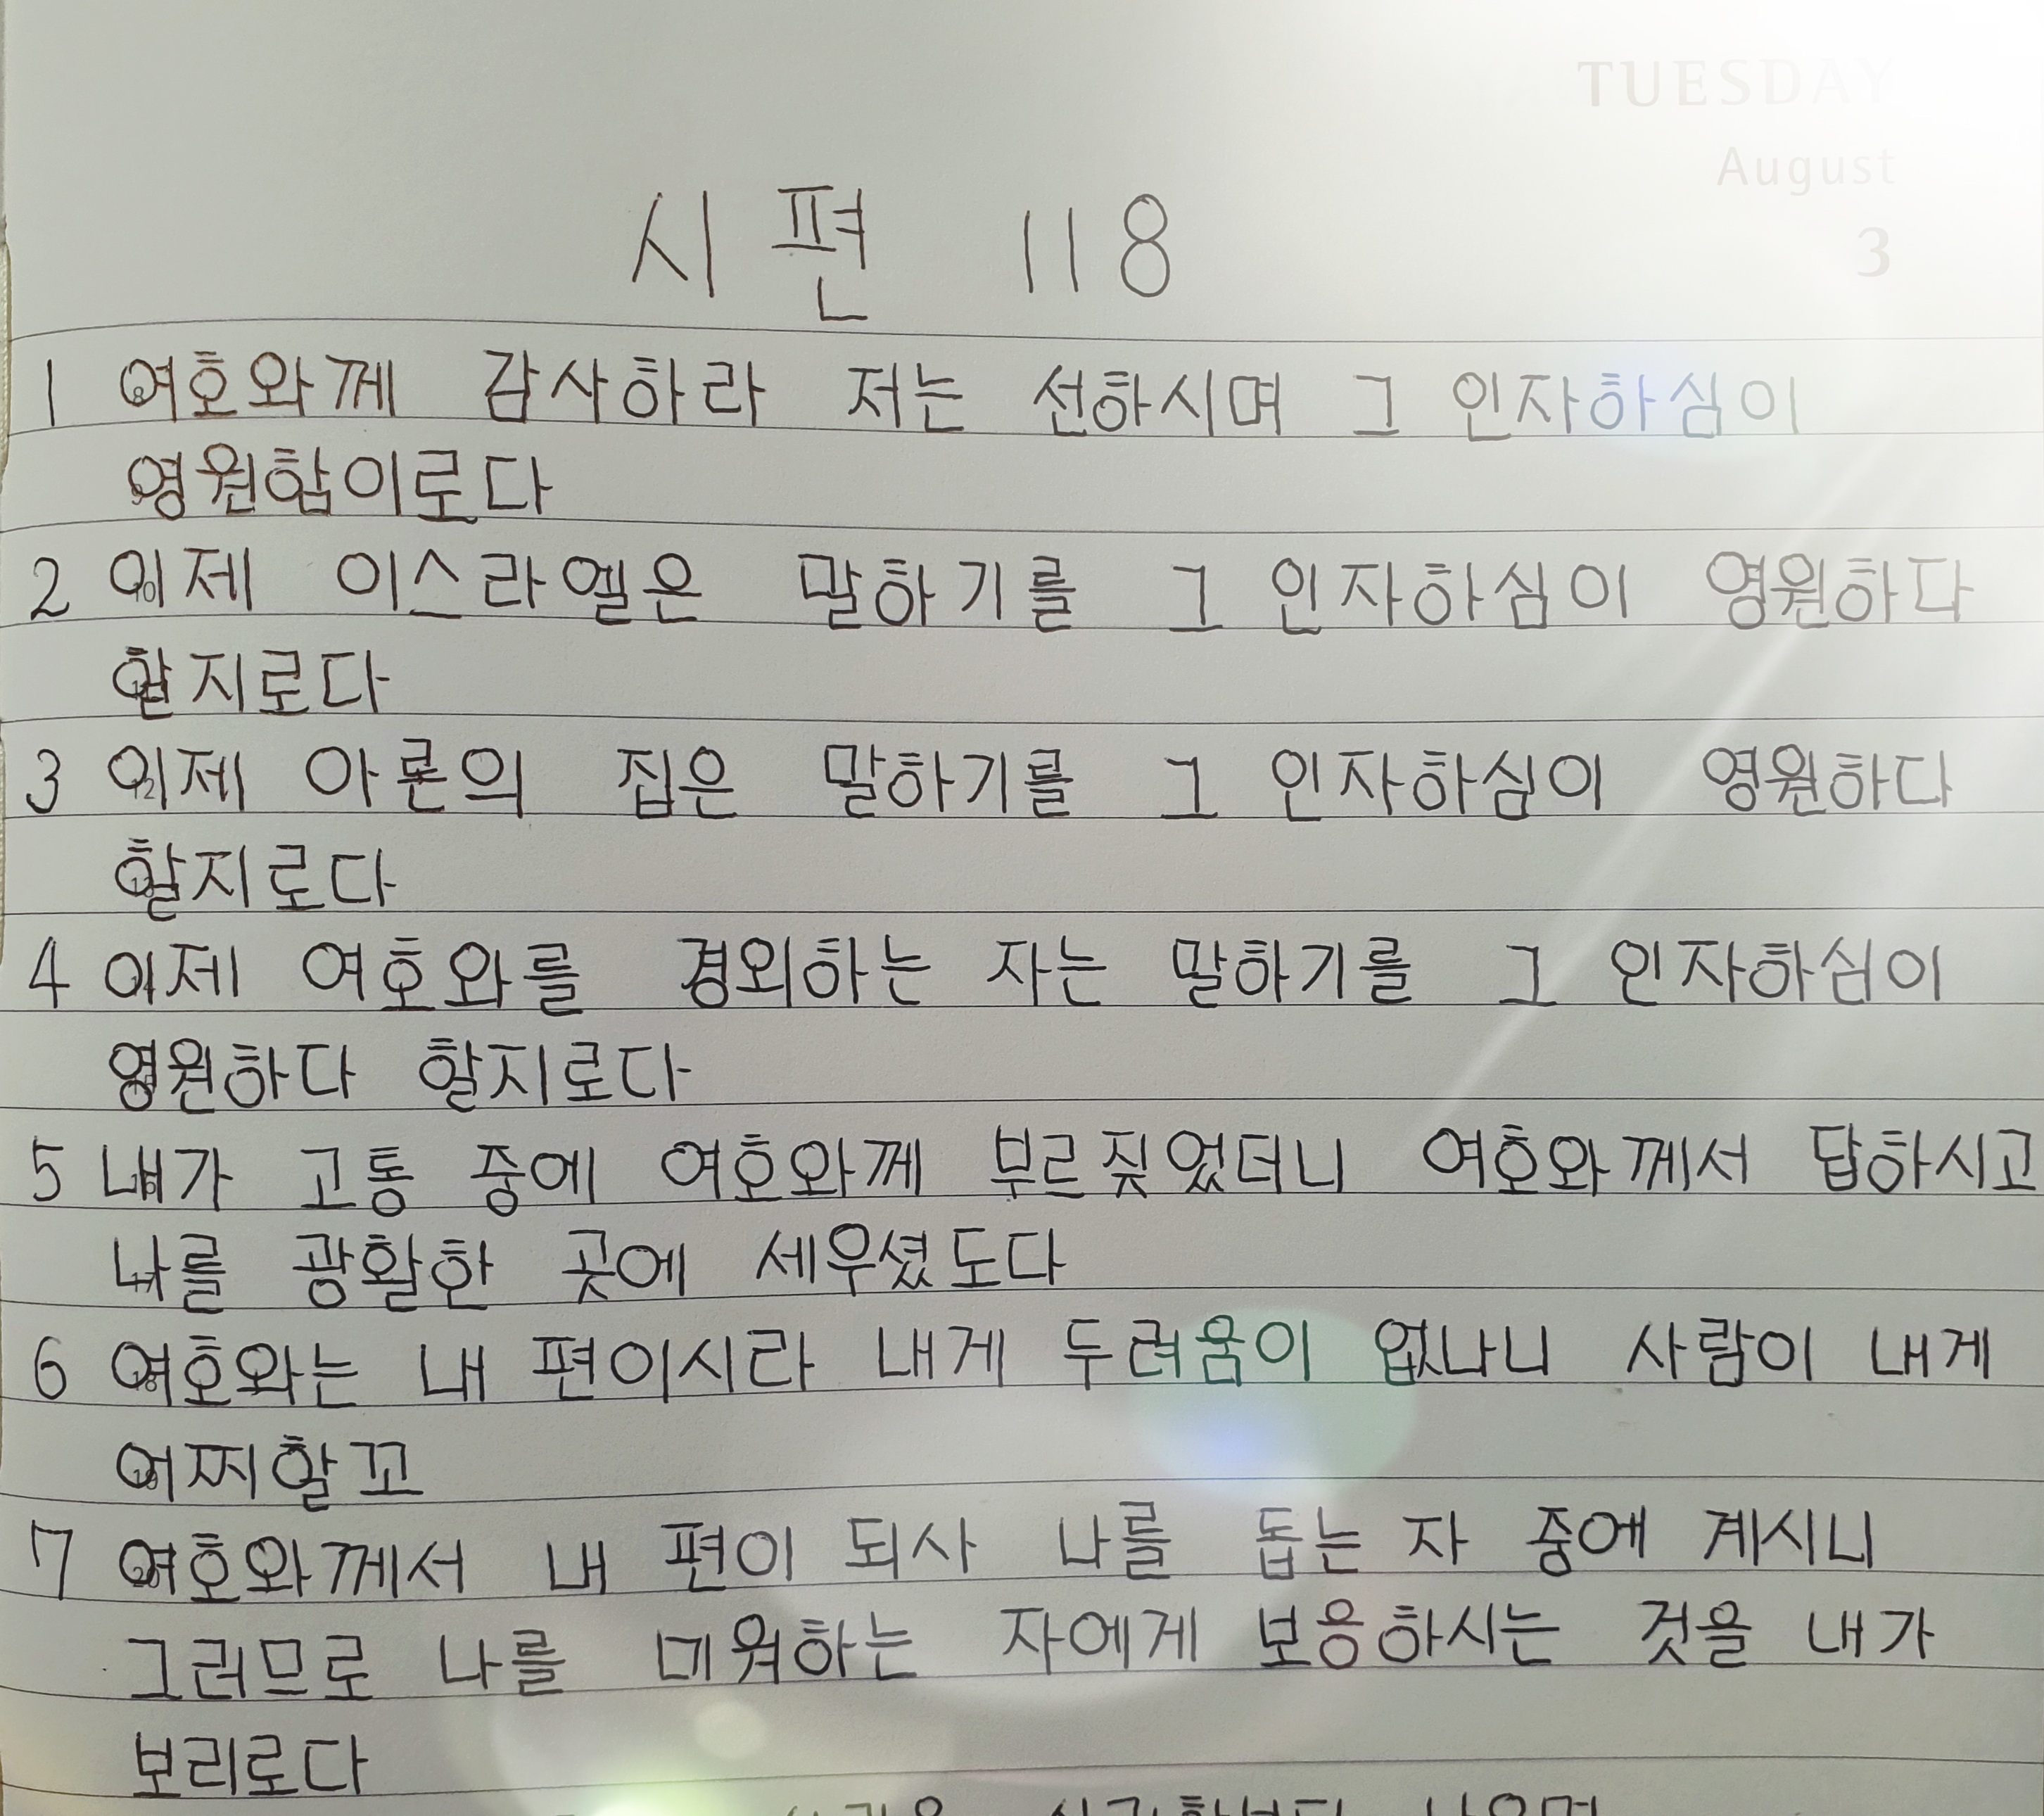 TUESDAY
August
3
시편 118
1 여호와께 감사하라 저는 선하시며 그 인자하심이
영원함이로다
2 이제 이스라엘은 말하기를 그 인자하심이 영원하다
할지로다
3 이제 아론의 집은 말하기를 그 인자하심이 영원하다
할지로다
4 이제 여호와를 경외하는 자는 말하기를 그 인자하심이
영원하다 할지로다
5 내가 고통 중에 여호와께 부르짖었더니 여호와께서 답하시고
나를 광활한 곳에 세우셨도다
6 여호와는 내 편이시라 내게 두려움이 없나니 사람이 내게
어찌할꼬
7 여호와께서 내 편이 되사 나를 돕는 자 중에 계시니
그러므로 나를 미워하는 자에게 보응하시는 것을 내가
보리로다